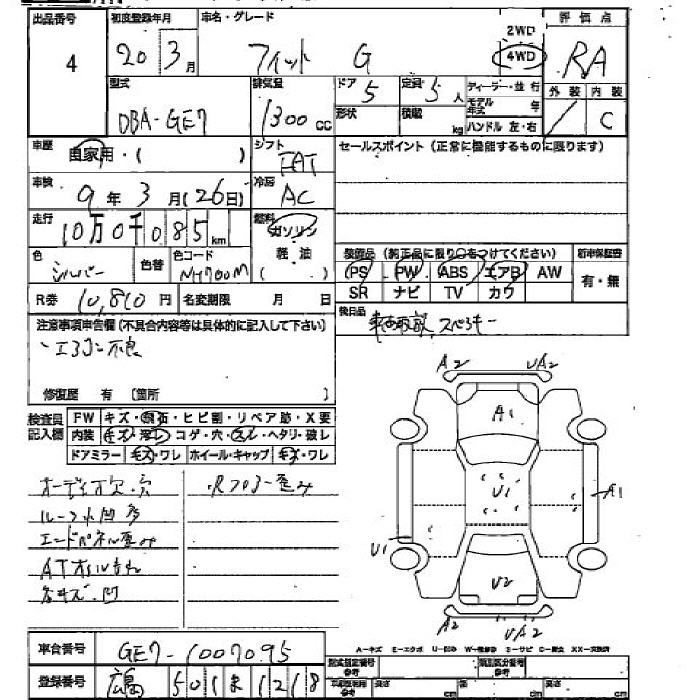 出品番号 初度登録年月 車名・グレード 評価点
4 20年 3月 フィット G 2WD 4WD RA
型式 排気量 ドア 5 定員 5人 ディーラー・並行 外装 内装
DBA-GE7 1300cc 形状 積載 kg モデル年式 年 ハンドル 左・右 C
車歴 自家用・( ) シフト FAT セールスポイント (正常に機能するものに限ります)
車検 9年 3月 (26日) 冷房 AC
走行 10万0千085km 燃料 ガソリン 軽油 ( . )
色 シルバー 色替 色コード NH700M 装備品 (純正品に限り○をつけてください) 新車保証書
PS PW ABS エアB AW 有・無
SR ナビ TV カワ
R券 10,810円 名変期限 月 日 後日品
注意事項申告欄 (不具合内容等は具体的に記入して下さい)
・エアコン不良
修復歴 有 〔箇所 〕
検査員記入欄 FW キズ・飛石・ヒビ割・リペア跡・X要
内装 キズ・汚レ・コゲ・穴・スレ・ヘタリ・破レ
ドアミラー キズ・ワレ ホイール・キャップ キズ・ワレ
オーディオ欠.穴
ルーフ凹多
エンドパネル歪み
ATオイル
各キズ.凹
A2 UA2
A1
U1 A1
U1
U2
A2 UA2
A-キズ E-エクボ U-凹み W-補修跡 S-サビ C-腐食 XX-交換済
車台番号 GE7-1007095
登録番号 広島 501 ま 1218
型式指定番号 参考 類別区分番号 参考
長さ cm 幅 cm 高さ cm